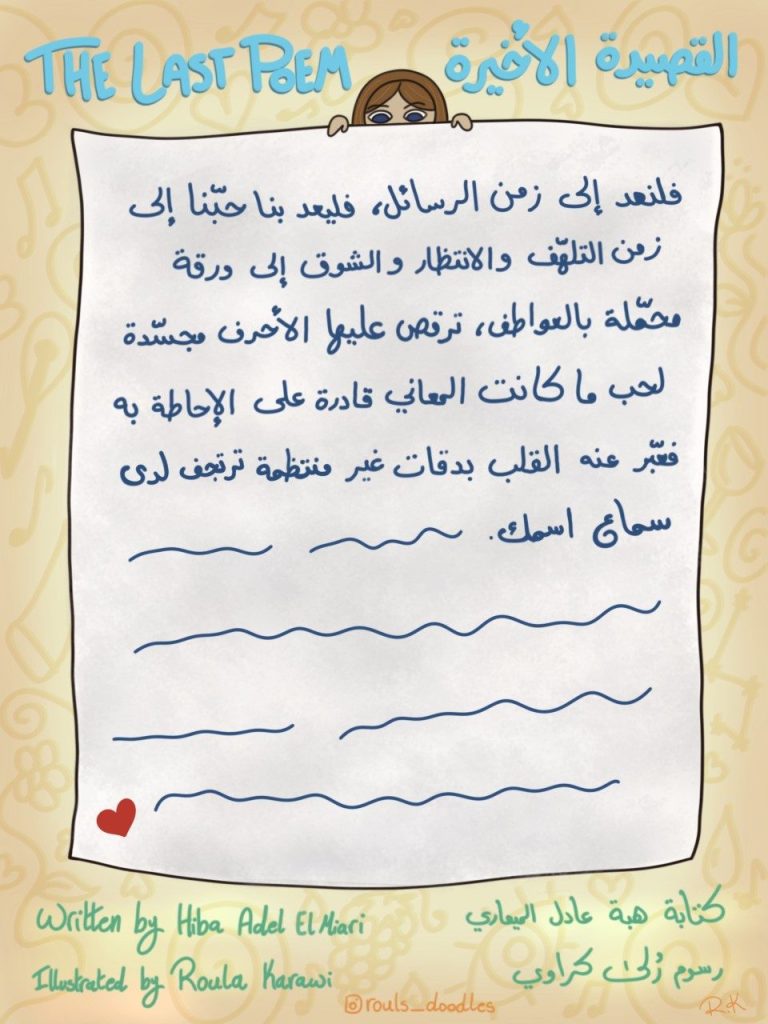 THE LAST POEM
القصيدة الأخيرة
فلنعد إلى زمن الرسائل، فليعد بنا حبّنا إلى
زمن التلهّف والانتظار والشوق إلى ورقة
محمّلة بالعواطف، ترقص عليها الأحرف مجسّدة
لحب ما كانت المعاني قادرة على الإحاطة به
فعبّر عنه القلب بدقات غير منتظمة ترتجف لدى
سماع اسمك.
Written by Hiba Adel El Miari
كتابة هبة عادل الميعاري
Illustrated by Roula Karawi
رسوم رُلى كراوي
@rouls_doodles
R.K